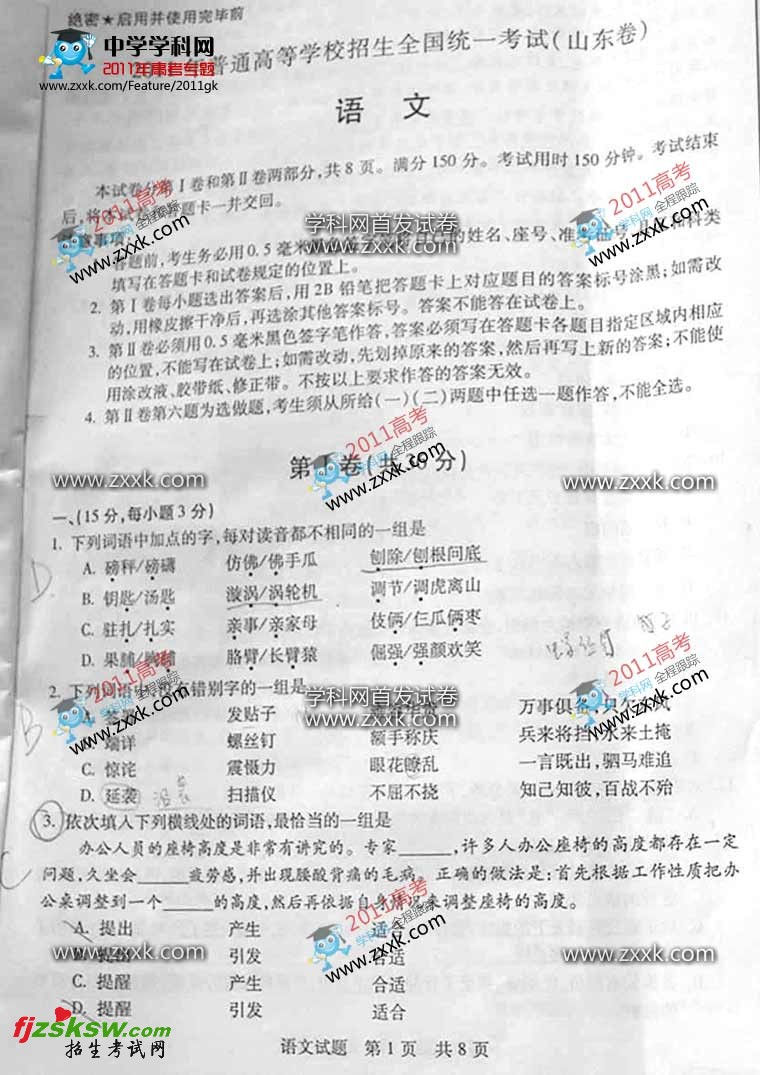 绝密★启用并使用完毕前
中学学科网
2011年高考专题
www.zxxk.com/Feature/2011gk
普通高等学校招生全国统一考试(山东卷)
语 文
本试卷分第Ⅰ卷和第Ⅱ卷两部分,共8页。满分150分。考试用时150分钟。考试结束
后,将 答题卡一并交回。
2011高考
学科网 全程跟踪
zxxk.com
学科网首发试卷
www.zxxk.com
2011高考
学科网 全程跟踪
zxxk.com
意事项:
答题前,考生务必用0.5毫米 的姓名、座号、准 和科类
填写在答题卡和试卷规定的位置上。
2. 第Ⅰ卷每小题选出答案后,用2B铅笔把答题卡上对应题目的答案标号涂黑;如需改
动,用橡皮擦干净后,再选涂其他答案标号。答案不能答在试卷上。
3. 第Ⅱ卷必须用0.5毫米黑色签字笔作答,答案必须写在答题卡各题目指定区域内相应
的位置,不能写在试卷上;如需改动,先划掉原来的答案,然后再写上新的答案;不能使
用涂改液、胶带纸、修正带。不按以上要求作答的答案无效。
4. 第Ⅱ卷第六题为选做题,考生须从所给(一)(二)两题中任选一题作答,不能全选。
2011高考
学科网 全程跟踪
zxxk.com
第Ⅰ卷(共36分)
www.zxxk.com
www.zxxk.com
一、(15分,每小题3分)
1. 下列词语中加点的字,每对读音都不相同的一组是
D.
A. 磅秤/磅礴 仿佛/佛手瓜 刨除/刨根问底
B. 钥匙/汤匙 漩涡/涡轮机 调节/调虎离山
C. 驻扎/扎实 亲事/亲家母 伎俩/仁瓜俩枣
D. 果脯/胸脯 胳臂/长臂猿 倔强/强颜欢笑
2011高考
学科网 全程跟踪
zxxk.com
学科网首发试卷
www.zxxk.com
2011高考
学科网 全程跟踪
zxxk.com
2. 下列词语中,没有错别字的一组是
B
A. 发贴子 万事俱备,只欠东风
端详 螺丝钉 额手称庆 兵来将挡,水来土掩
C. 惊诧 震慑力 眼花瞭乱 一言既出,驷马难追
D. 延袭 扫描仪 不屈不挠 知己知彼,百战不殆
3. 依次填入下列横线处的词语,最恰当的一组是
C
办公人员的座椅高度是非常有讲究的。专家______,许多人办公座椅的高度都存在一定
问题,久坐会______疲劳感,并出现腰酸背痛的毛病。正确的做法是:首先根据工作性质把办
公桌调整到一个______的高度,然后再依据自身情况来调整座椅的高度。
2011高考
学科网 全程跟踪
zxxk.com
www.zxxk.com
www.zxxk.com
A. 提出 产生 适合
B. 提出 引发 合适
C. 提醒 产生 合适
D. 提醒 引发 适合
fjzsksw.com
招生考试网
语文试题 第1页 共8页